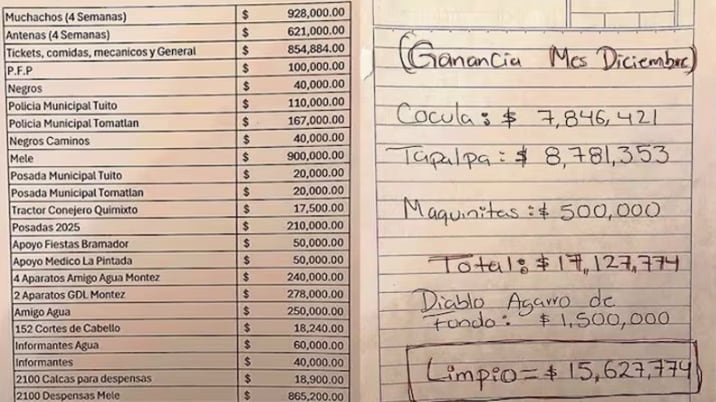 Muchachos (4 Semanas) $ 928,000.00
Antenas (4 Semanas) $ 621,000.00
Tickets, comidas, mecanicos y General $ 854,884.00
P.F.P $ 100,000.00
Negros $ 40,000.00
Policia Municipal Tuito $ 110,000.00
Policia Municipal Tomatlan $ 167,000.00
Negros Caminos $ 40,000.00
Mele $ 900,000.00
Posada Municipal Tuito $ 20,000.00
Posada Municipal Tomatlan $ 20,000.00
Tractor Conejero Quimixto $ 17,500.00
Posadas 2025 $ 210,000.00
Apoyo Fiestas Bramador $ 50,000.00
Apoyo Medico La Pintada $ 50,000.00
4 Aparatos Amigo Agua Montez $ 240,000.00
2 Aparatos GDL Montez $ 278,000.00
Amigo Agua $ 250,000.00
152 Cortes de Cabello $ 18,240.00
Informantes Agua $ 60,000.00
Informantes $ 40,000.00
2100 Calcas para despensas $ 18,900.00
2100 Despensas Mele $ 865,200.00
(Ganancia Mes Diciembre)
Cocula: $ 7,846,421
Tapalpa: $ 8,781,353
Maquinitas: $ 500,000
Total: $ 17,127,774
Diablo Agarro de
Fondo: $ 1,500,000
Limpio = $ 15,627,774